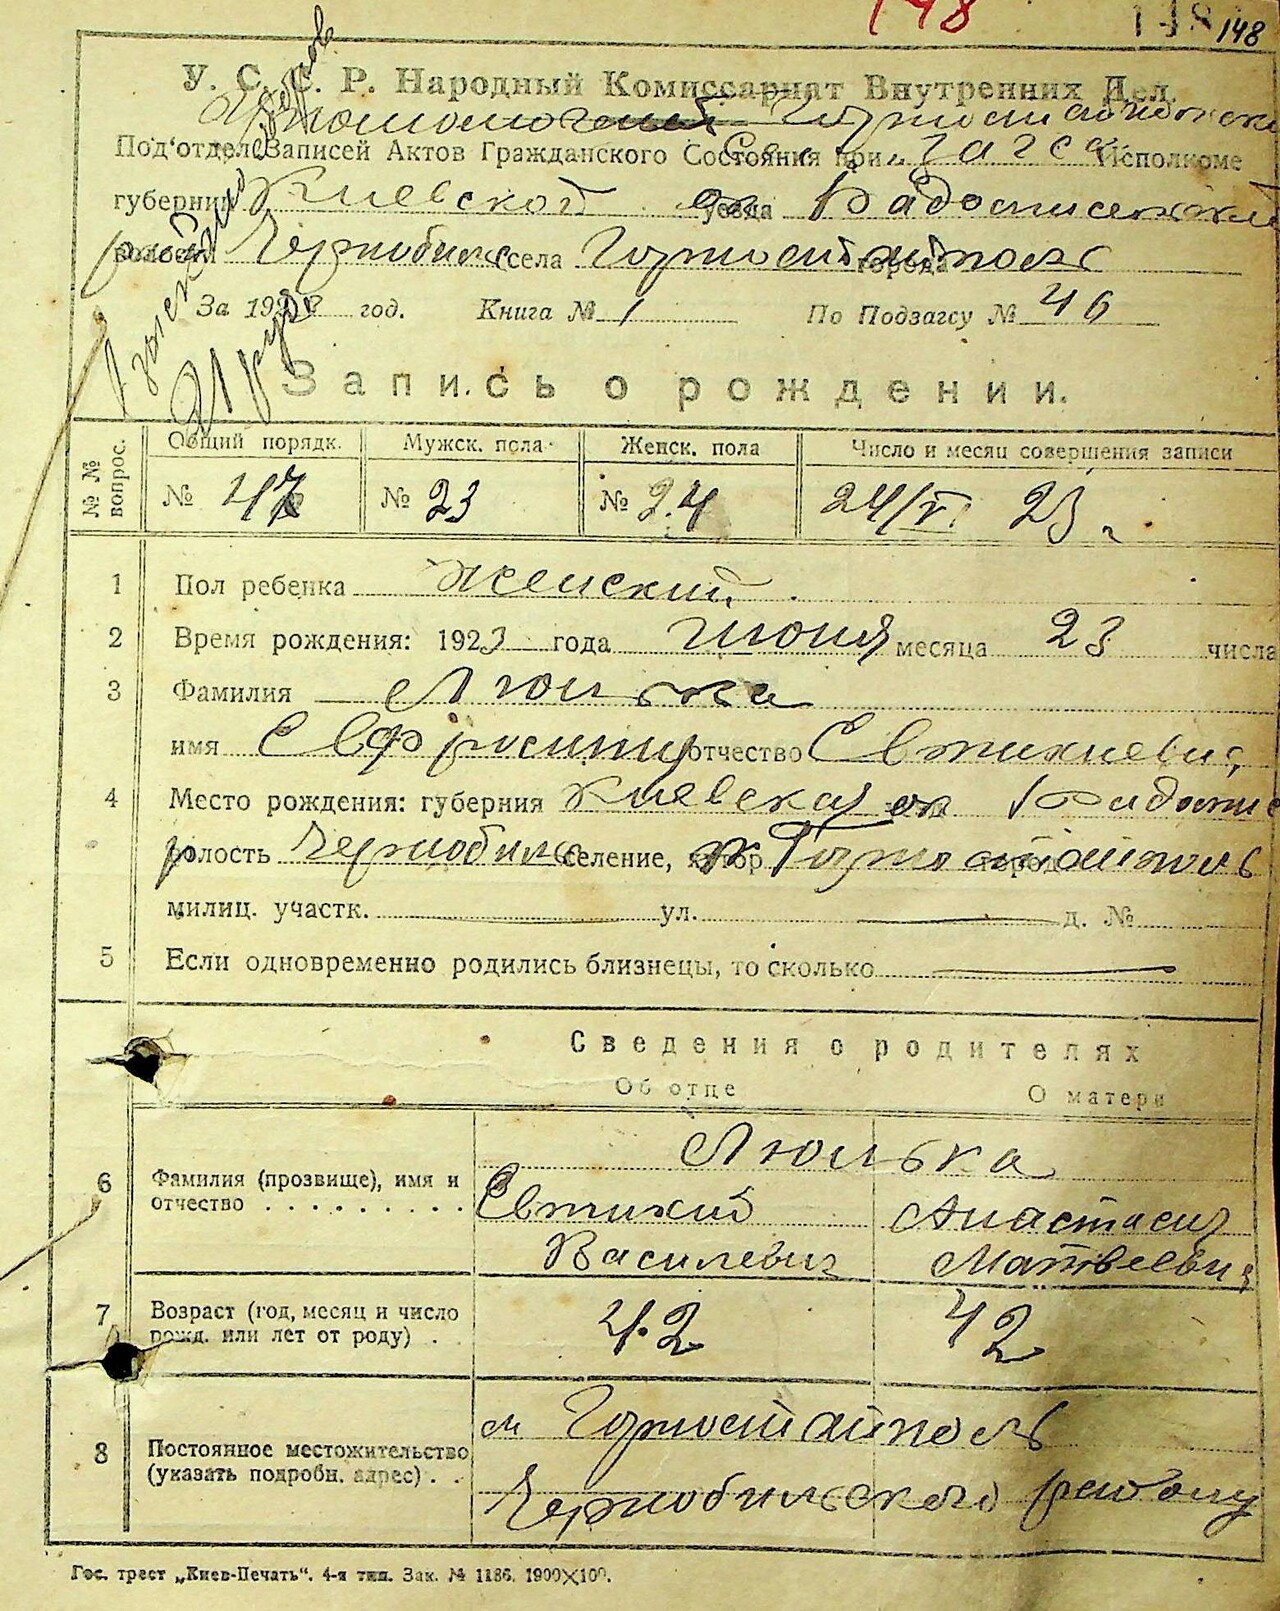 148 148 148
У. С. С. Р. Народный Комиссариат Внутренних Дел.
Под'отдел Записей Актов Гражданского Состояния при загса Исполкоме
губернии Киевской уезда
волости села Горностайполь города
За 1923 год. Книга № 1 По Подзагсу № 46
Запись о рождении.
№ № вопрос. Общий порядк. Мужск. пола Женск. пола Число и месяц совершения записи
№ 47 № 23 № 24 24/V 23 г
1 Пол ребенка Женский.
2 Время рождения: 1923 года июня месяца 23 числа
3 Фамилия Люлька
имя отчество
4 Место рождения: губерния Киевская ок
волость селение, хутор Горностайполь город
милиц. участк. ул. д. №
5 Если одновременно родились близнецы, то сколько
Сведения о родителях
Об отце О матери
Люлька
6 Фамилия (прозвище), имя и отчество Евтихий Анастасия
Василевич
7 Возраст (год, месяц и число рожд. или лет от роду) 42 42
м Горностайполь
8 Постоянное местожительство (указать подробн. адрес)
Чернобильского району
Гос. трест „Киев-Печать“. 4-я тип. Зак. № 1186. 1900×100.